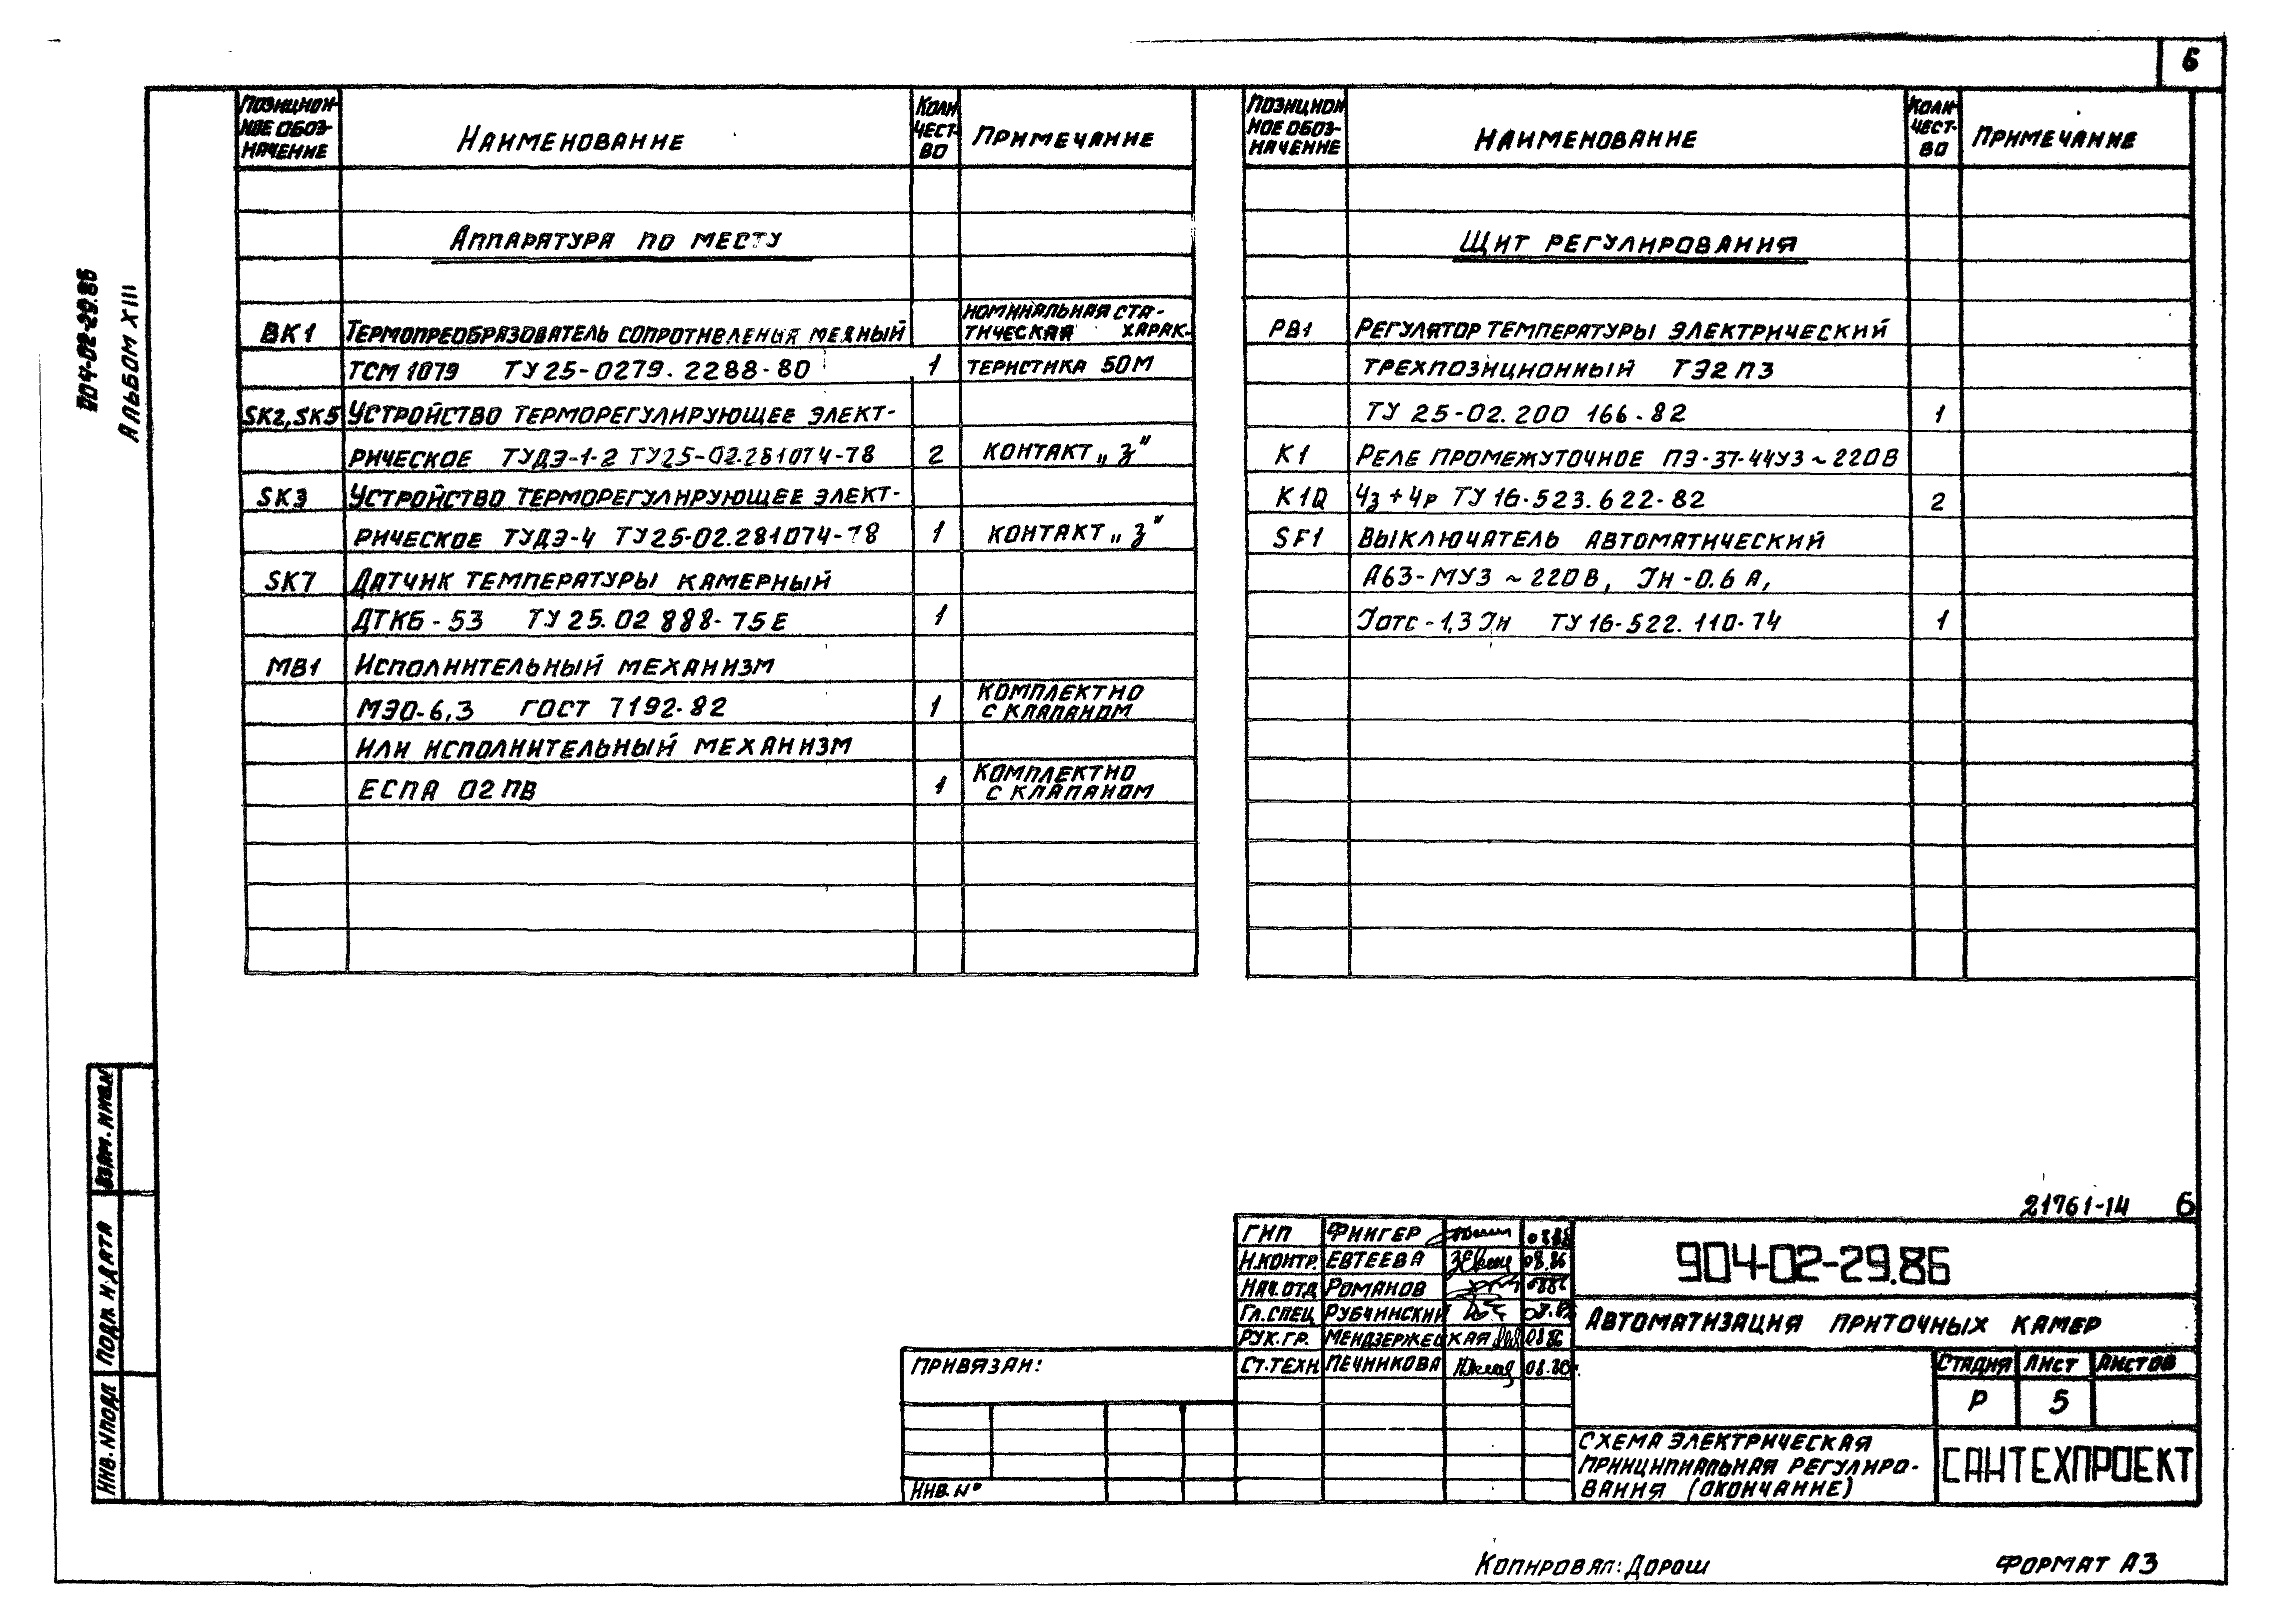 6
904-02-29.86
Альбом XIII
Позицион- ное обоз- начение
Наименование
Коли чест- во
Примечание
Аппаратура по месту
ВК1 Термопреобразователь сопротивления медный номинальная ста- тическая харак-
ТСМ 1079 ТУ 25-0279.2288-80 1 теристика 50М
SK2, SK5 Устройство терморегулирующее элект-
рическое ТУДЭ-1-2 ТУ25-02.281074-78 2 контакт „з"
SK3 Устройство терморегулирующее элект-
рическое ТУДЭ-4 ТУ25-02.281074-78 1 контакт „з"
SK7 Датчик температуры камерный
ДТКБ-53 ТУ 25.02 888-75Е 1
МВ1 Исполнительный механизм
МЭО-6,3 ГОСТ 7192-82 1 комплектно с клапаном
или исполнительный механизм
ЕСПА 02ПВ 1 комплектно с клапаном
Позицион ное обоз- начение
Наименование
Коли- чест- во
Примечание
Щит регулирования
РВ1 Регулятор температуры электрический
трехпозиционный ТЭ2П3
ТУ 25-02.200 166-82 1
К1 Реле промежуточное ПЭ-37-44У3 ~220В
К1Q 4з+4р ТУ 16-523.622-82 2
SF1 Выключатель автоматический
А63-МУ3 ~220В, Iн-0.6А,
Iотс-1,3 Iн ТУ 16-522.110-74 1
Взам. инв.N
Подп. и дата
Инв. N подл
21761-14 6
ГИП Фингер
Н.контр. Евтеева 08.86
Нач.отд Романов
Гл.спец Рубчинский
Рук.гр. Мендзержецкая 08 86
Ст.техн Печникова 08.86г.
904-02-29.86
Автоматизация приточных камер
Стадия Лист Листов
Р 5
Схема электрическая
принципиальная регулиро-
вания (окончание)
САНТЕХПРОЕКТ
Привязан:
Инв. N°
Копировал: Дорош
Формат А3